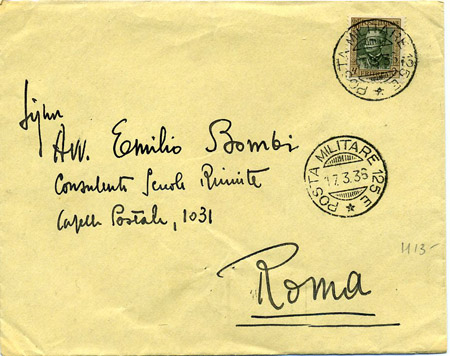 POSTA MILITARE 125 E
Sign
Avv. Emilio Bombi
Consulente Scuole Riunite
Casella Postale, 1031
POSTA MILITARE 125 E
17.3.36
Roma